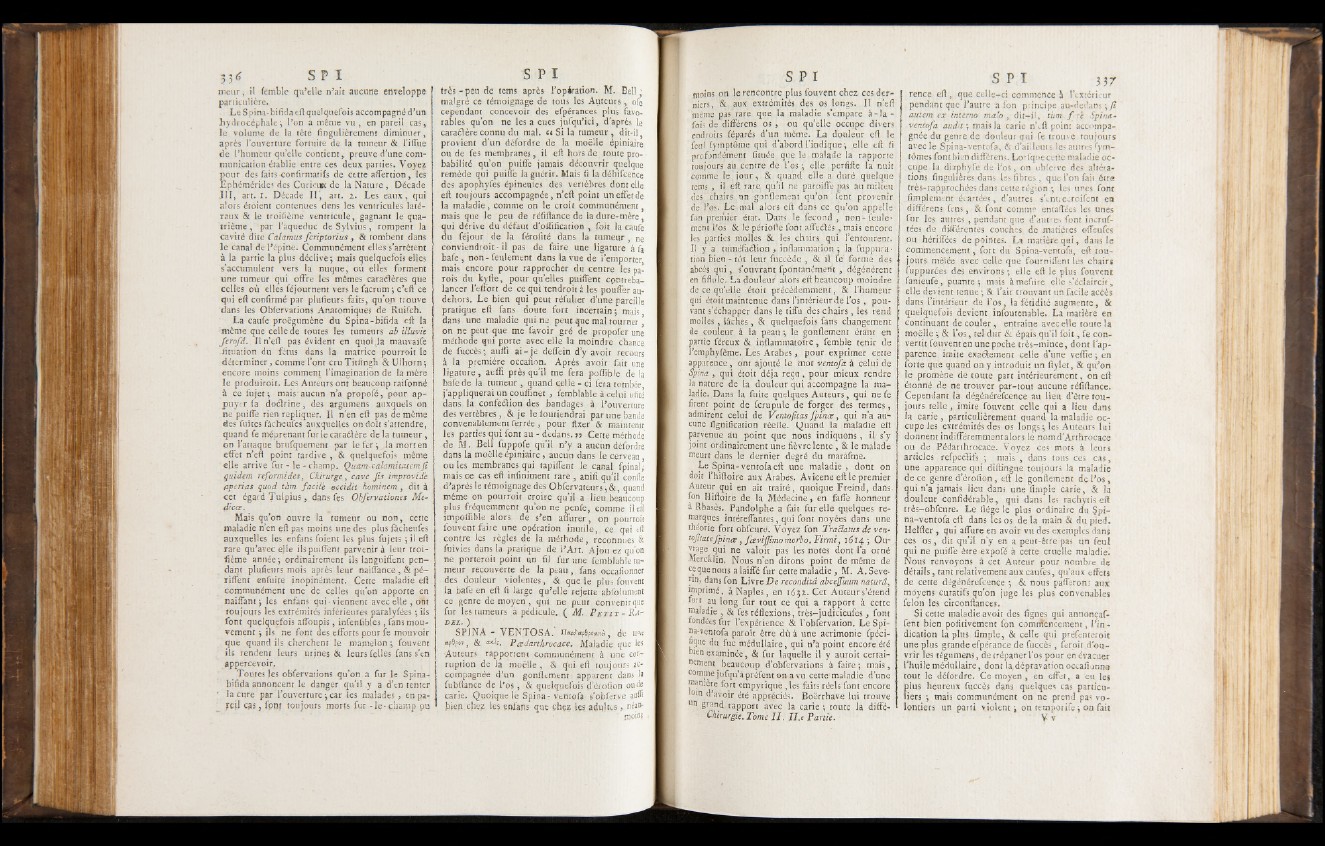 336 SPI
meur, il semble qu'elle n'ait aucune enveloppe
particulière.
Le Spina-bifida est quelquefois accompagné d'un
hydrocéphale, l'on a même vu, en pareil cas,
le volume de la tête singulièrement diminuer,
après l'ouverture fortuite de la tumeur & l'issue
de l'humeur qu'elle contient, preuve d'une com-
munication établie entre ces deux parties. Voyez
pour des faits confirmatifs de cette assertion, les
Ephémérides des Curieux de la Nature, Décade
III, art. 1. Décade II, art. 2. Les eaux, qui
alors étoient contenues dans les ventricules laté-
raux & le troisième ventricule, gagnant le qua-
trième, par l'aqueduc de Sylvius, rompent la
cavité dite Calamus scriptorius, & tombent dans
le canal de l'épine. Communément elles s'arrêtent
à la partie la plus déclive; mais quelquefois elles
s'accumulent vers la nuque, où elles forment
une tumeur qui offre les mêmes caractères que
celles où elles séjournent vers le sacrum; c'est ce
qui est confirmé par plusieurs faits, qu'on trouve
dans les Observations Anatomiques de Ruisch.
La cause proëgumène du Spina-bifida est la
même que celle de toutes les tumeurs ab illuvie
serosâ. Il n'est pas évident en quoi la mauvaise
situation du fétus dans la matrice pourroit le
déterminer, comme l'ont cru Titsingh & Ulhorn;
encore moins comment l'imagination de la mère
le produiroit. Les Auteurs ont beaucoup raisonné
à ce sujet; mais aucun n'a proposé, pour ap-
puyer sa doctrine, des argumens auxquels on
ne puisse rien repliquer. Il n'en est pas de même
des suites fâcheuses auxquelles on doit s'attendre,
quand se méprenant sur le caractère de la tumeur,
on l'attaque brusquement par le fer; la mort en
effet n'est point tardive, & quelquefois même
elle arrive sur-le-champ. Quam calamitatem si
quidem reformides, Chirurge, cave sis improvide
aperias quod tàm facile occidit hominem, dit à
cet égard Tulpius, dans ses Observationes Me-
dicæ.
Mais qu'on ouvre la tumeur ou non, cette
maladie n'en est pas moins une des plus fâcheuses
auxquelles les enfans soient les plus sujets; il est
rare qu'avec elle ils puissent parvenir à leur troi-
sième année; ordinairement ils languissent pen-
dant plusieurs mois après leur naissance, & pé-
rissent ensuite inopinément. Cette maladie est
communément une de celles qu'on apporte en
naissant; les enfans qui viennent avec elle, ont
toujours les extrémités inférieures paralysées; ils
sont quelquefois assoupis, insensibles, sans mou-
vement; ils ne font des efforts pour se mouvoir
que quand ils cherchent le mamelon; souvent
ils rendent leurs urines & leurs selles sans s'en
appercevoir.
Toutes les observations qu'on a sur le Spina-
bifida annoncent le danger qu'il y a d'en tenter
la cure par l'ouverture; car les malades, en pa-
reil cas, sont toujours morts sur-le-champ ou
SPI
très-peu de tems après l'opération. M. Bell,
malgré ce témoignage de tous les Auteurs, ose
cependant concevoir des espérances plus favo-
rables qu'on ne les a eues jusqu'ici, d'après le
caractère connu du mal. « Si la tumeur, dit-il,
provient d'un désordre de la moëlle épiniaire
ou de ses membranes, il est hors de toute pro-
babilité qu'on puisse jamais découvrir quelque
remède qui puisse la guérir. Mais si la déhiscence
des apophyses épineuses des vertèbres dont elle
est toujours accompagnée, n'est point un effet de
la maladie, comme on le croit communément,
mais que le peu de résistance de la dure-mère,
qui dérive du défaut d'ossification, soit la cause
du séjour de la sérosité dans la tumeur, ne
conviendroit-il pas de faire une ligature à sa
base, non-seulement dans la vue de l'emporter,
mais encore pour rapprocher du centre les pa-
rois du kyste, pour qu'elles puissent contreba-
lancer l'effort de ce qui tendroit à les pousser au-
dehors. Le bien qui peut résulter d'une pareille
pratique est sans doute fort incertain; mais,
dans une maladie qui ne peut que mal tourner,
on ne peut que me savoir gré de proposer une
méthode qui porte avec elle la moindre chance
de succès; aussi ai-je dessein d'y avoir recours
à la première occasion. Après avoir fait une
ligature, aussi près qu'il me sera possible de la
base de la tumeur, quand celle-ci sera tombée,
j'appliquerai un coussinet, semblable à celui usité
dans la confection des bandages à l'ouverture
des vertèbres, & je le soutiendrai par une bande
convenablement serrée, pour fixer & maintenir
les parties qui sont au-dedans. » Cette méthode
de M. Bell suppose qu'il n'y a aucun désordre
dans la moëlle épiniaire, aucun dans le cerveau,
ou les membranes qui tapissent le canal spinal,
mais ce cas est infiniment rare, ainsi qu'il conste
d'après le témoignage des Observateurs, &, quand
même on pourroit croire qu'il a lieu beaucoup
plus fréquemment qu'on ne pense, comme il est
impossible alors de s'en assurer, on pourroit
souvent faire une opération inutile, ce qui est
contre les règles de la méthode, reconnues &
suivies dans la pratique de l'Art. Ajoutez qu'on
ne porteroit point un fil sur une semblable tu-
meur recouverte de la peau, sans occasionner
des douleur violentes, & que le plus souvent
la base en est si large qu'elle rejette absolument
ce genre de moyen, qui ne peut convenir que
sur les tumeurs à pédicule. (M. PETIT-RA-
DEL.)
SPINA-VENTOSA. de
& Pœdarthrocace. Maladie que les
Auteurs rapportent communément à une cor-
ruption de la moëlle, & qui est toujours ac-
compagnée d'un gonflement apparent dans la
substance de l'os, & quelquefois d'érosion ou de
carie. Quoique le Spina-ventosa s'observe aussi
bien chez les enfans que chez les adultes, néan-
moins
SPI
moins on le rencontre plus souvent chez ces der-
niers, & aux extrémités des os longs. Il n'est
même pas rare que la maladie s'empare à-la-
fois de différens os, ou qu'elle occupe divers
endroits séparés d'un même. La douleur est le
seul symptôme qui d'abord l'indique; elle est si
profondément située que le malade la rapporte
toujours au centre de l'os; elle persiste la nuit
comme le jour, & quand elle a duré quelque
tems, il est rare qu'il ne paroisse pas au milieu
des chairs un gonflement qu'on sent provenir
de l'os. Le mal alors est dans ce qu'on appelle
son premier état. Dans le second, non-seule-
ment l'os & le périoste sont affectés, mais encore
les parties molles & les chairs qui l'entourent.
Il y a tuméfaction, inflammation; la suppura-
tion bien-tôt leur succède, & il se forme des
abcès qui, s'ouvrant spontanément, dégénèrent
en fistule. La douleur alors est beaucoup moindre
de ce qu'elle étoit précédemment, & l'humeur
qui étoit maintenue dans l'intérieur de l'os, pou-
vant s'échapper dans le tissu des chairs, les rend
molles, lâches, & quelquefois sans changement
de couleur à la peau; le gonflement étant en
partie séreux & inflammatoire, semble tenir de
l'emphysème. Les Arabes, pour exprimer cette
apparence, ont ajouté le mot ventosa à celui de
Spina, qui étoit déja reçu, pour mieux rendre
la nature de la douleur qui accompagne la ma-
ladie. Dans la suite quelques Auteurs, qui ne se
firent point de scrupule de forger des termes,
admirent celui de Ventositas spinæ, qui n'a au-
cune signification réelle. Quand la maladie est
parvenue au point que nous indiquons, il s'y
joint ordinairement une fièvre lente, & le malade
meurt dans le dernier degré du marasme.
Le Spina-ventosa est une maladie, dont on
doit l'histoire aux Arabes. Avicene est le premier
Auteur qui en ait traité, quoique Freind, dans
son Histoire de la Médecine, en fasse honneur
à Rhasès. Pandolphe a fait sur elle quelques re-
marques intéressantes, qui sont noyées dans une
théorie fort obscure. Voyez son Tractatus de ven-
tositate spinæ, sævissimo morbo, Firmi, 1614; Ou-
vrage qui ne valoit pas les notes dont l'a orné
Mercklin. Nous n'en dirons point de même de
ce que nous a laissé sur cette maladie, M. A. Seve-
rin, dans son Livre De recondita abcessuum naturâ,
imprimé, à Naples, en 1632. Cet Auteur s'étend
fort au long sur tout ce qui a rapport à cette
maladie, & ses réflexions, très-judicieuses, sont
fondées sur l'expérience & l'observation. Le Spi-
na-ventosa paroît être dû à une acrimonie spéci-
fique du suc médullaire, qui n'a point encore été
bien examinée, & sur laquelle il y auroit certai-
nement beaucoup d'observations à faire; mais,
comme jusqu'à présent on a vu cette maladie d'une
manière fort empyrique, les faits réels sont encore
loin d'avoir été appréciés. Boërrhave lui trouve
un grand rapport avec la carie; toute la diffé-
Chirurgie. Tome II. II.e Partie.
SPI 337
rence est, que celle-ci commence à l'extérieur
pendant que l'autre a son principe au-dedans; si
autem ex interno malo, dit-il, tum sæpè spina-
ventosa audit; mais la carie n'est point accompa-
gnée du genre de douleur qui se trouve toujours
avec le Spina-ventosa, & d'ailleurs les autres symp-
tômes sont bien différens. Lorsque cette maladie oc-
cupe la diaphyse de l'os, on observe des altéra-
tions singulières dans les fibres, que l'on sait être
très-rapprochées dans cette région; les unes sont
simplement écartées, d'autres s'entrecroisent en
différens sens, & sont comme entassées les unes
sur les autres, pendant que d'autres sont incrus-
tées de différentes couches de matières osseuses
ou hérissées de pointes. La matière qui, dans le
commencement, sort du Spina-ventosa, est tou-
jours mêlée avec celle que fournissent les chairs
suppurées des environs; elle est le plus souvent
sanieuse, puante; mais à mesure elle s'éclaircit,
elle devient tenue; & l'air trouvant un facile accès
dans l'intérieur de l'os, la fétidité augmente, &
quelquefois devient insoutenable. La matière en
continuant de couler, entraîne avec elle toute la
moëlle; & l'os, tel dur & épais qu'il soit, se con-
vertit souvent en une poche très-mince, dont l'ap-
parence imite exactement celle d'une vessie; en
sorte que quand on y introduit un stylet, & qu'on
le promène de toute part intérieurement, on est
étonné de ne trouver par-tout aucune résistance.
Cependant la dégénérescence au lieu d'être tou-
jours telle, imite souvent celle qui a lieu dans
la carie, particulièrement quand la maladie oc-
cupe les extrémités des os longs; les Auteurs lui
donnent indifféremment alors le nom d'Arthrocace
ou de Pédarthrocace. Voyez ces mots à leurs
articles respectifs; mais, dans tous ces cas,
une apparence qui distingue toujours la maladie
de ce genre d'érosion, est le gonflement de l'os,
qui n'a jamais lieu dans une simple carie, & la
douleur considérable, qui dans les rachytis est
très-obscure. Le siège le plus ordinaire du Spi-
na-ventosa est dans les os de la main & du pied.
Heister, qui assure en avoir vu des exemples dans
ces os, dit qu'il n'y en a peut-être pas un seul
qui ne puisse être exposé à cette cruelle maladie.
Nous renvoyons à cet Auteur pour nombre de
détails, tant relativement aux causes, qu'aux effets
de cette dégénérescence; & nous passerons aux
moyens curatifs qu'on juge les plus convenables
selon les circonstances.
Si cette maladie avoit des signes qui annonças-
sent bien positivement son commencement, l'in-
dication la plus simple, & celle qui présenteroit
une plus grande espérance de succès, seroit d'ou-
vrir les tégumens, de trépaner l'os pour en évacuer
l'huile médullaire, dont la dépravation occasionne
tout le désordre. Ce moyen, en effet, a eu les
plus heureux succès dans quelques cas particu-
liers; mais communément on ne prend pas vo-
lontiers un parti violent; on temporise; on fait
V v